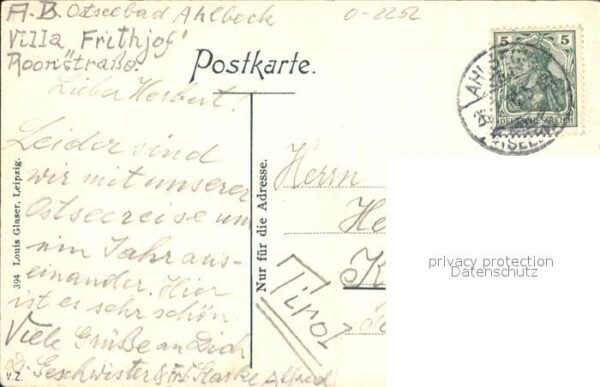 A-B. Ostseebad Ahlbeck
Villa „Frithjof“
Roonstraße.
0-2252
Postkarte.
5 5
DEUTSCHES REICH
AHLBECK
OSTSEEBAD
Lieber Herbert!
Leider sind
wir mit unserer
Ostseereise um
ein Jahr aus-
einander. Hier
ist es sehr schön.
Viele Grüße an Dich
D. Geschwister & Frl. Starke Alfred
v.Z.
394 Louis Glaser, Leipzig.
Nur für die Adresse.
Herrn
He
K
Tirol
privacy protection
Datenschutz